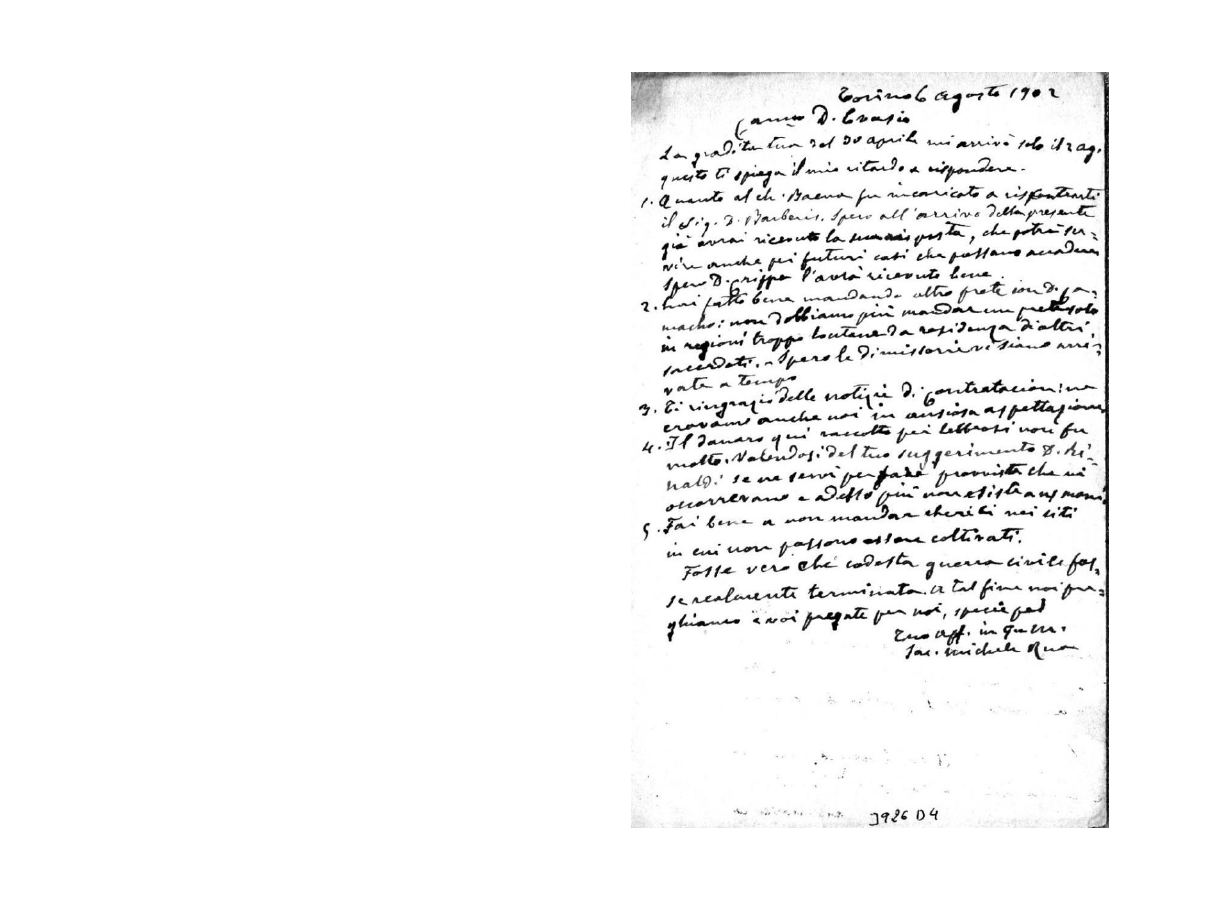 Torino 6 agosto 1902
Carmo D. Evasio
La gradita tua del 30 aprile mi arrivò solo il 2 ag.
questo ti spiega il mio ritardo a rispondere.
1. Quanto al ch. Baena fu incaricato a riscontrarti
il Sig. D. Barberis. Spero all'arrivo della presente
già avrai ricevuto la sua risposta, che potrà ser=
vire anche pei futuri casi che possano accadere
Spero D. Grippa l'avrà ricevuto bene.
2. Hai fatto bene mandando altro prete con D. Ca=
macho: non dobbiamo più mandar un prete solo
in regioni troppo lontane da residenza di altri
sacerdoti. - Spero le dimissorie vi siano arri=
vate a tempo
3. Ti ringrazio delle notizie di Contratacion: ne
eravamo anche noi in ansiosa aspettazione
4. Il danaro qui raccolto pei lebbrosi non fu
molto. Valendosi del tuo suggerimento D. Ri=
naldi se ne servì per fare provviste che vi
occorrevano e adesso più non esiste
5. Fai bene a non mandar cherici nei siti
in cui non possono essere coltivati.
Fosse vero che codesta guerra civile fos=
se realmente terminata. A tal fine noi pre=
ghiamo e voi pregate per noi, specie pel
Tuo aff. in G. e M.
Sac. Michele Rua
3926 D4